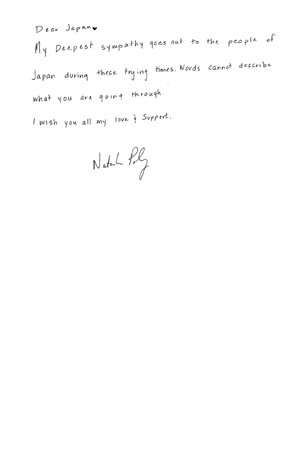 Dear Japan♥
My Deepest sympathy goes out to the people of
Japan during these trying times. Words cannot describe
what you are going through.
I wish you all my love & Support.
Natasha Poly